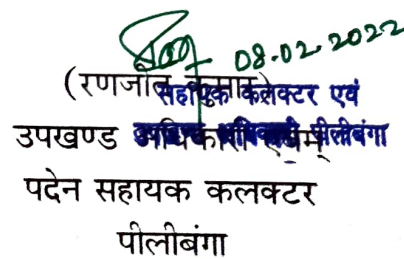 08.02.2022
(रणजीत कुमार)
सहायक कलक्टर एवं
उपखण्ड अधिकारी एवम्
उपखण्ड अधिकारी पीलीबंगा
पदेन सहायक कलक्टर
पीलीबंगा